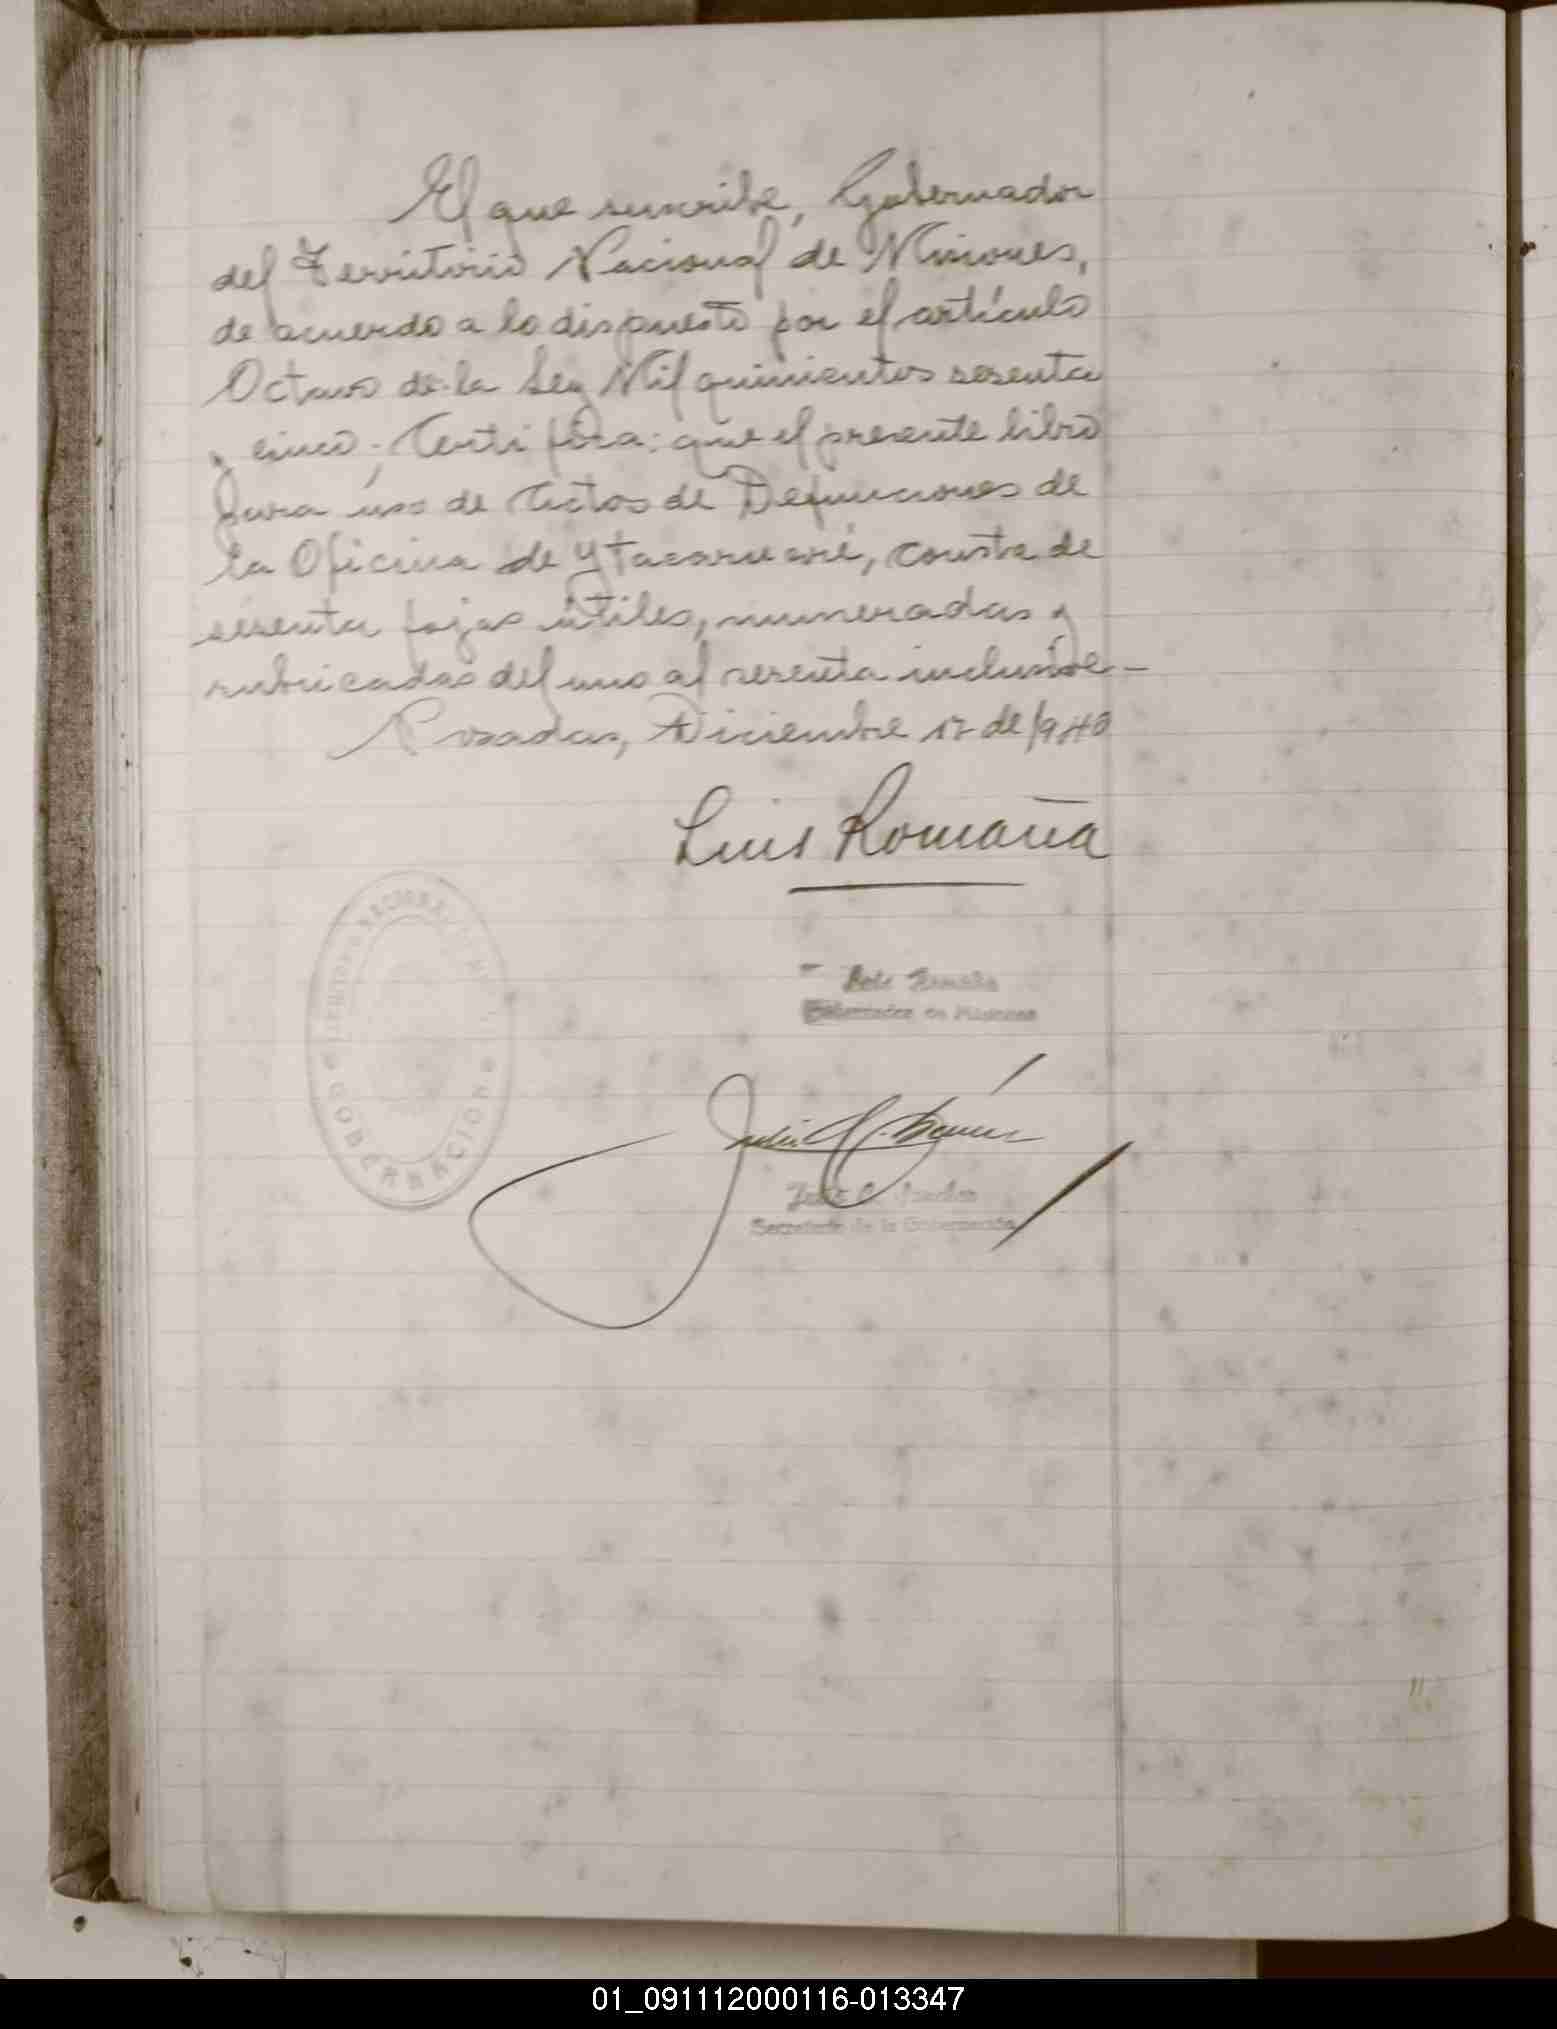 El que suscribe, Gobernador
del Territorio Nacional de Misiones,
de acuerdo a lo dispuesto por el artículo
Octavo de la Ley Mil quinientos sesenta
y cinco; Certifica: que el presente libro
para uso de Actos de Defunciones de
la Oficina de Ytacaruaré, consta de
sesenta fojas útiles, numeradas y
rubricadas del uno al sesenta inclusive.-
Posadas, Diciembre 17 de 1940
Luis Romaña
TERRITORIO NACIONAL
GOBERNACION
Gobernador de Misiones
Secretario de la Gobernación
01_091112000116-013347